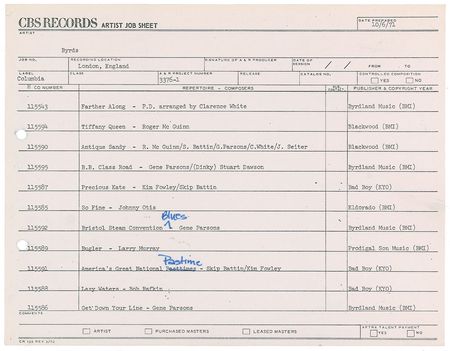 CBS RECORDS ARTIST JOB SHEET
DATE PREPARED
10/6/71
ARTIST
Byrds
JOB NO. RECORDING LOCATION SIGNATURE OF A & R PRODUCER DATE OF SESSION / / FROM TO
London, England
LABEL CLASS A & R PROJECT NUMBER RELEASE CATALOG NO. CONTROLLED COMPOSITION
Columbia 3376-1 YES NO
CO NUMBER REPERTOIRE - COMPOSERS PUBLISHER & COPYRIGHT YEAR
115543 Farther Along - P.D. arranged by Clarence White Byrdland Music (BMI)
115594 Tiffany Queen - Roger Mc Guinn Blackwood (BMI)
115590 Antique Sandy - R. Mc Guinn/S. Battin/G.Parsons/C.White/J. Seiter Blackwood (BMI)
115595 B.B. Class Road - Gene Parsons/(Dinky) Stuart Dawson Byrdland Music (BMI)
115587 Precious Kate - Kim Fowley/Skip Battin Bad Boy (KYO)
115585 So Fine - Johnny Otis Eldorado (BMI)
Blues
115592 Bristol Steam Convention Gene Parsons Byrdland Music (BMI)
115589 Bugler - Larry Murray Prodigal Son Music (BMI)
Pastime
115591 America's Great National - Skip Battin/Kim Fowley Bad Boy (KYO)
115588 Lazy Waters - Bob Rafkin Bad Boy (KYO)
115586 Get Down Your Line - Gene Parsons Byrdland Music (BMI)
COMMENTS
ARTIST PURCHASED MASTERS LEASED MASTERS
AFTRA TALENT PAYMENT
YES NO